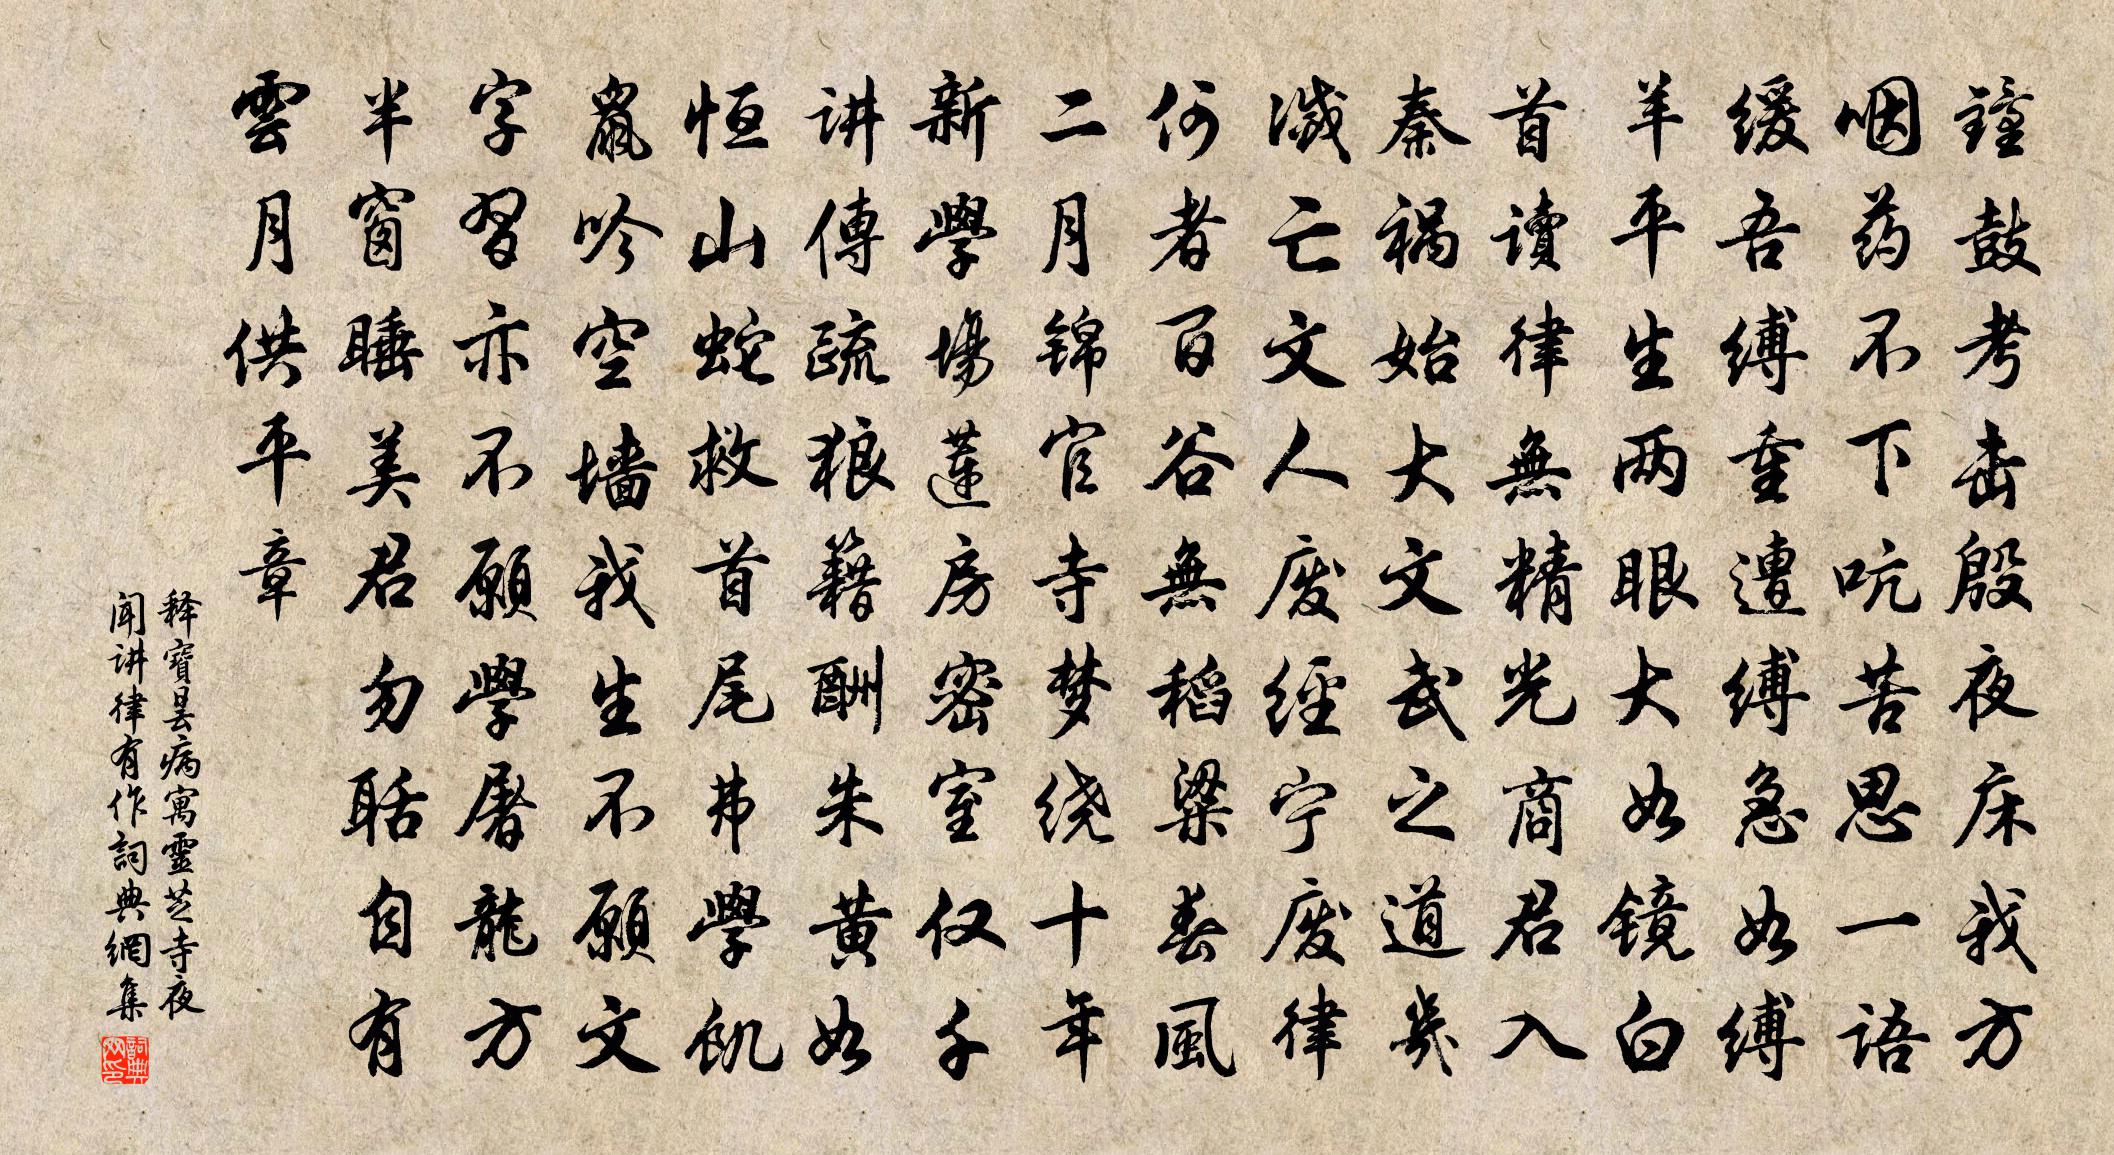 鐘鼓考击殷夜床我方
咽药不下吭苦思一语
缓吾缚重遭缚急如缚
羊平生两眼大如镜白
首读律無精光商君入
秦祸始大文武之道幾
滅亡文人废經宁废律
何者百谷無稻粱春風
二月锦官寺梦绕十年
新學場蓮房密室仅千
讲傳疏狼藉酬朱黄如
恒山蛇救首尾弗學飢
鼠吟空墙我生不願文
字習亦不願學屠龍方
半窗睡美君勿聒自有
雲月供平章
释寶曇病寓靈芝寺夜
闻讲律有作詞典網集
詞典网印